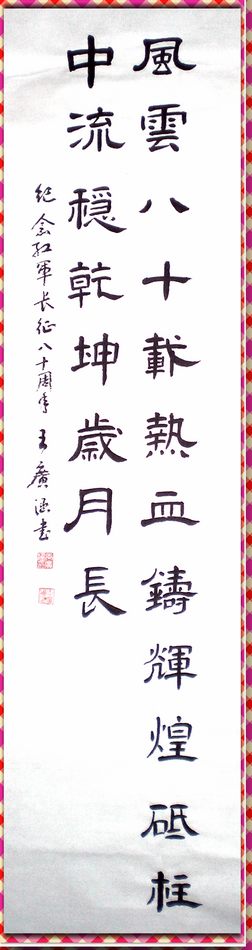 風雲八十載熱血鑄輝煌砥柱
中流穩乾坤歲月長
纪念红軍长征八十周年 王廣涵书